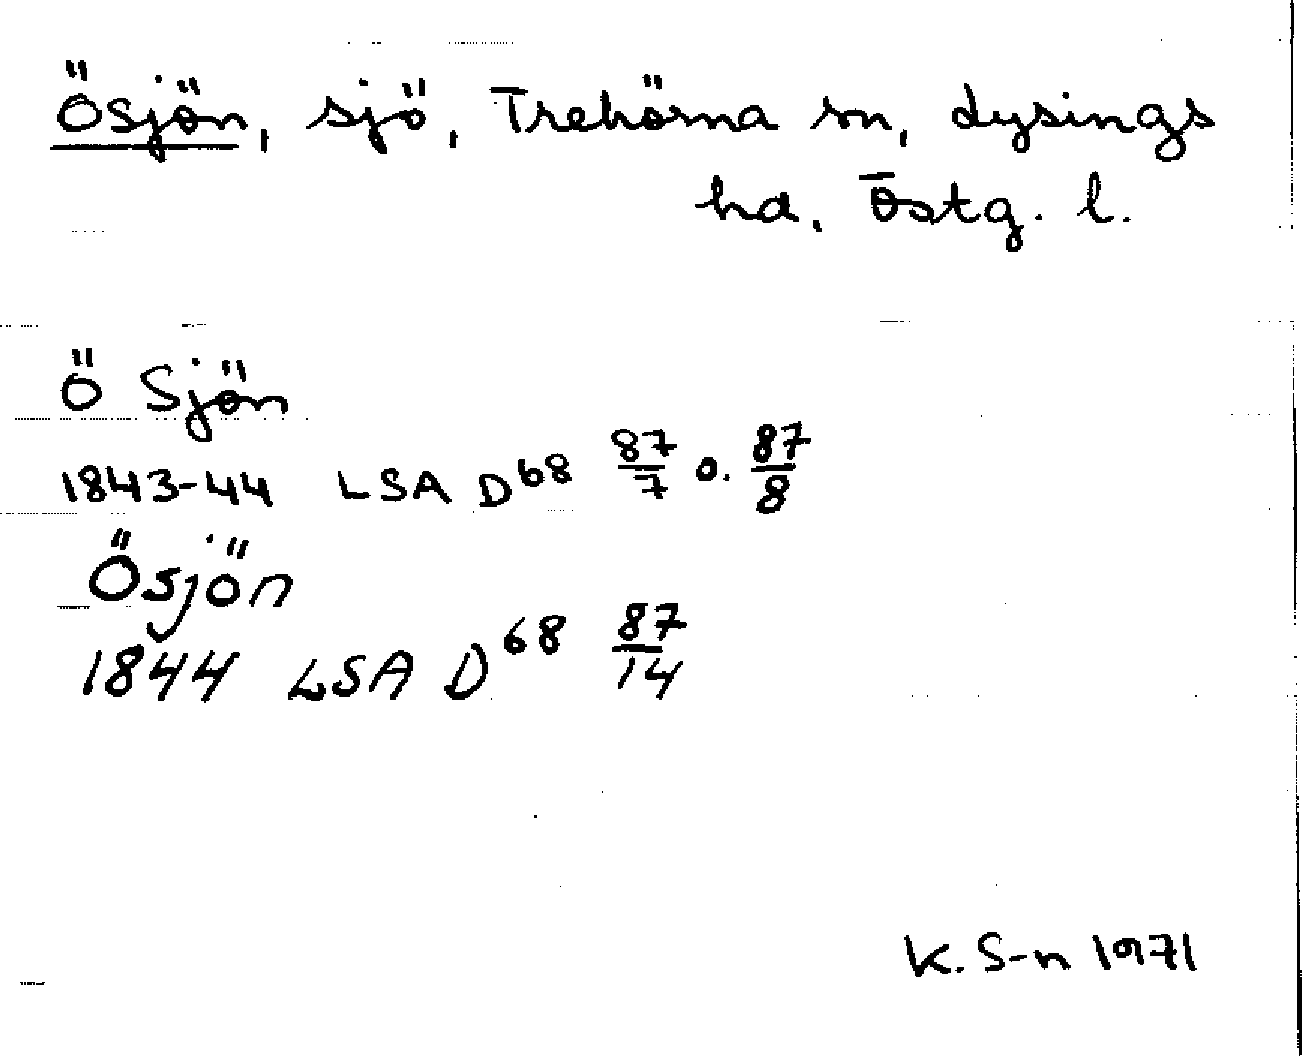 Ösjön, sjö, Trehörna sn, Lysings
hd. Östg. l.
Ö Sjön
1843-44 LSA D68 87/7 o. 87/8
Ösjön
1844 LSA D68 87/14
K. S-n 1971